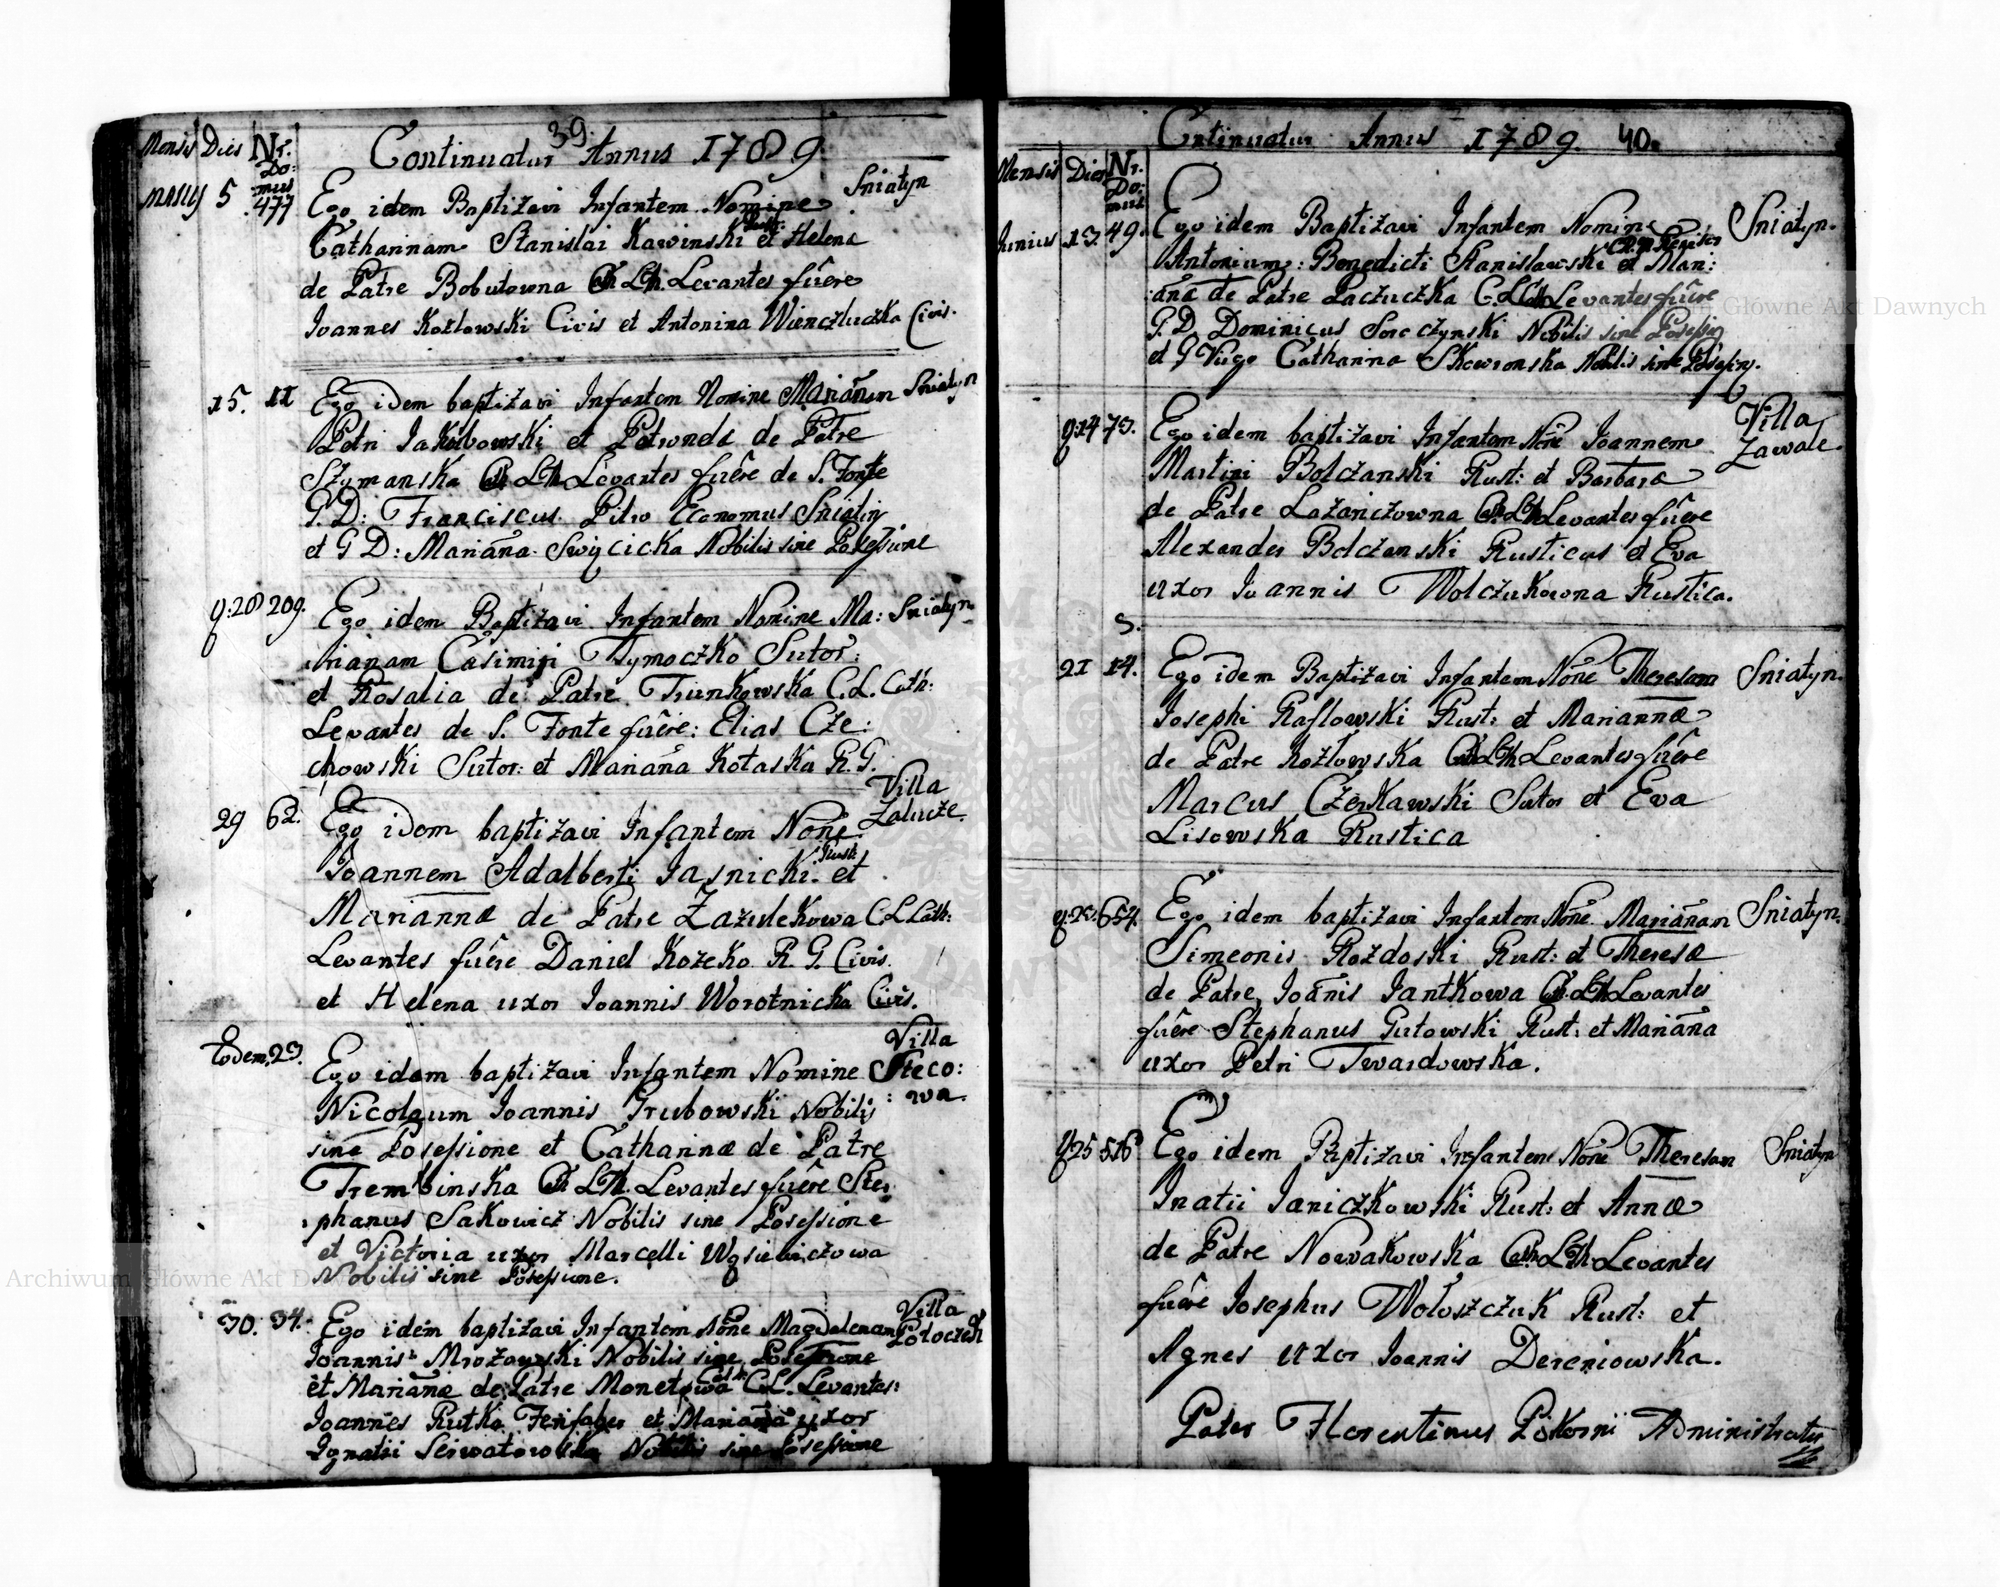 39.
Continuatur Annus 1789
Mensis Dies Nr. Domus
Maius 5 477
Ego idem Baptizavi Infantem Nomine Sniatyn
Catharinam Stanislai Kawinski Rust: et Helena
de Patre Bobutowna C. L. Levantes fuêre
Joannes Kozlowski Civis et Antonina Wienczluczka Civis.
15. 11 Ego idem baptizavi Infantem Nomine Mariañam Sniatyn
Petri Jakubowski et Petronela de Patre
Szymanska Levantes fuêre de S. Fonte
G. D: Franciscus Pitro Economus Sniatin
et G D: Mariaña Swięcicka Nobilis sine Posessione
g: 28 209. Ego idem Baptizavi Infantem Nomine Ma: Sniatyn
rianam Casimiri Tymoczko Sutor:
et Rosalia de Patre Trunkowska C. L. Cath:
Levantes de S. Fonte fuêre: Elias Cze:
chowski Sutor: et Mariaña Kotaska R. G.
Villa Zalucze.
29 62. Ego idem baptizavi Infantem Noñe
Joannem Adalberti Jasnicki Rust: et
Mariannæ de Patre Zazulekowa C L Cath:
Levantes fuêre Daniel Kozeko R. G. Civis.
et Helena uxor Joannis Worotnicka Civis.
Villa Steco:
: wa.
Eodem 23. Ego idem baptizavi Infantem Nomine
Nicolaum Joannis Grubowski Nobilis
sine Posessione et Catharinæ de Patre
Trembinska Levantes fuêre Ste:
phanus Sakowicz Nobilis sine Posessione
et Victoria uxor Marcelli Wąsiewiczowa
Nobilis sine Posessione.
Villa Potoczek
30. 34. Ego idem baptizavi Infantem Noñe Magdalenam
Joannis Mrozowski Nobilis sine Posessione
et Mariañæ de Patre Monetowa Cath C. L. Levantes:
Joannes Rutka Ferifaber et Mariaña uxor
Ignatii Serwatowska Nobilis sine Posessione
Continuatur Annus 1789. 40.
Mensis Dies Nr. Domus
Junius 13. 49. Ego idem Baptizavi Infantem Nomine Sniatyn.
Antonium: Benedicti Stanislawski et Mari:
ana de Patre Paczuczka C. L. Levantes fuêre
G. D. Dominicus Soroczynski Nobilis sine Posessi
et G Virgo Catharina Skowronska Nobilis sine Posessi.
g: 14 73. Ego idem baptizavi Infantem Noñe Joannem Villa Zawale.
Martini Bolczanski Rust: et Barbaræ
de Patre Lazariczowna Levantes fuêre
Alexander Bolczanski Rusticus et Eva
uxor Joannis Wolczukowna Rustica.
21 14. Ego idem Baptizavi Infantem Noñe Theresam Sniatyn.
Josephi Raflowski Rust: et Mariannæ
de Patre Kozłowska Levantes fuêre
Marcus Czerkawski Sutor et Eva
Lisowska Rustica
g: 23. 654. Ego idem baptizavi Infantem Noñe Mariañam Sniatyn.
Simeonis Rozdoski Rust: et Theresæ
de Patre Joañis Jantkowa Levantes
fuêre Stephanus Gutowski Rust: et Mariaña
uxor Petri Twardowska.
g 25 516 Ego idem Baptizavi Infantem Noñe Theresam Sniatyn
Inatii Janiczkowski Rust: et Annæ
de Patre Nowakowska Levantes
fuêre Josephus Wołoszczuk Rust: et
Agnes uxor Joannis Dereniowska.
Pater Florentinus Pokorni Administrator
Archiwum Główne Akt Dawnych